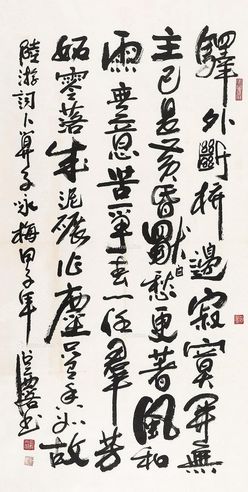 驛外斷橋邊寂寞開無
主已是黄昏獨自愁更著風和
雨無意苦爭春一任羣芳
妬零落成泥碾作塵只有香如故
陸游詞卜算子咏梅甲子年